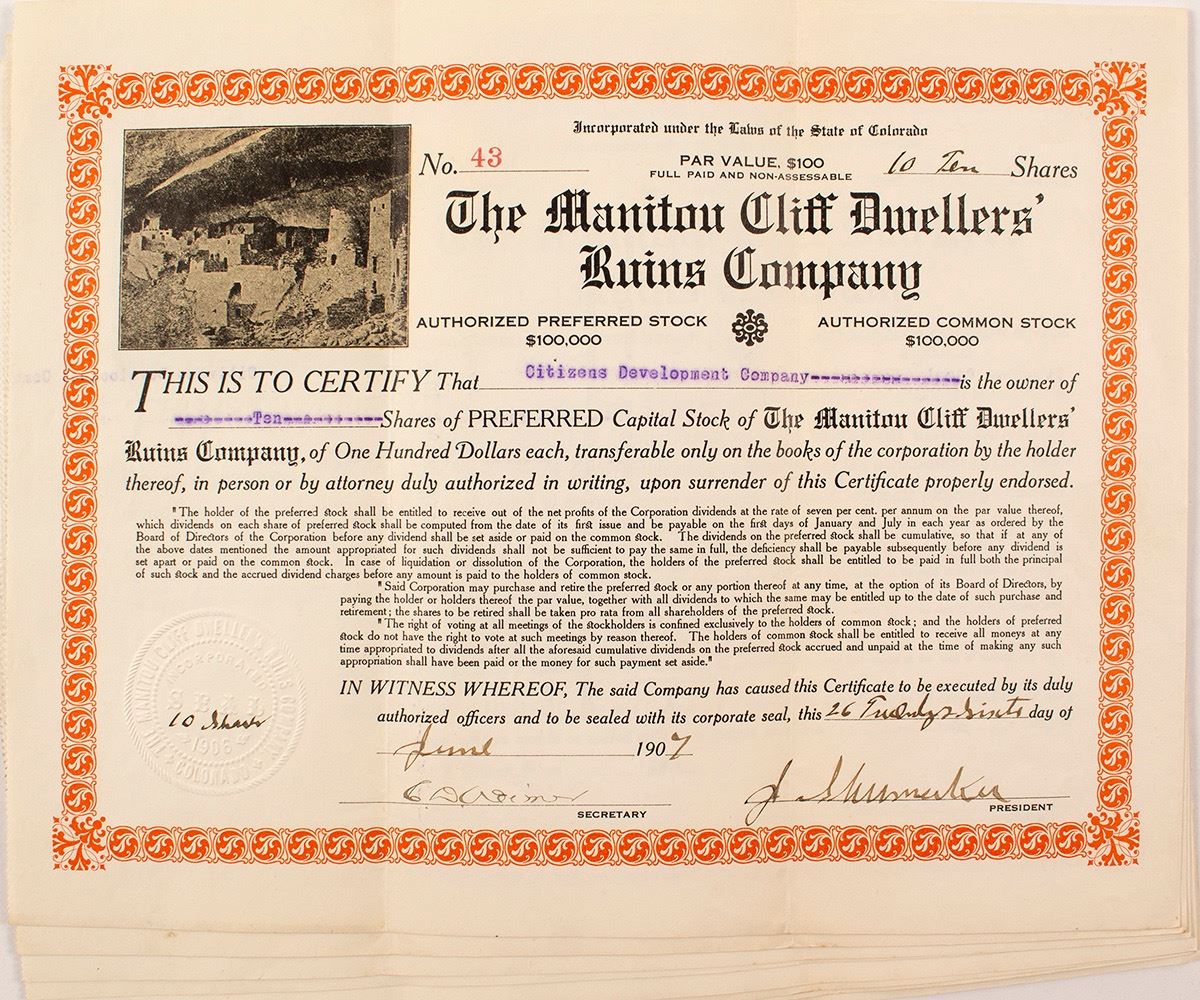 Incorporated under the Laws of the State of Colorado
No. 43
PAR VALUE, $100
FULL PAID AND NON-ASSESSABLE
10 Ten Shares
The Manitou Cliff Dwellers'
Ruins Company
AUTHORIZED PREFERRED STOCK
$100,000
AUTHORIZED COMMON STOCK
$100,000
THIS IS TO CERTIFY That Citizens Development Company is the owner of
Ten Shares of PREFERRED Capital Stock of The Manitou Cliff Dwellers'
Ruins Company, of One Hundred Dollars each, transferable only on the books of the corporation by the holder
thereof, in person or by attorney duly authorized in writing, upon surrender of this Certificate properly endorsed.
"The holder of the preferred stock shall be entitled to receive out of the net profits of the Corporation dividends at the rate of seven per cent. per annum on the par value thereof,
which dividends on each share of preferred stock shall be computed from the date of its first issue and be payable on the first days of January and July in each year as ordered by the
Board of Directors of the Corporation before any dividend shall be set aside or paid on the common stock. The dividends on the preferred stock shall be cumulative, so that if at any of
the above dates mentioned the amount appropriated for such dividends shall not be sufficient to pay the same in full, the deficiency shall be payable subsequently before any dividend is
set apart or paid on the common stock. In case of liquidation or dissolution of the Corporation, the holders of the preferred stock shall be entitled to be paid in full both the principal
of such stock and the accrued dividend charges before any amount is paid to the holders of common stock.
"Said Corporation may purchase and retire the preferred stock or any portion thereof at any time, at the option of its Board of Directors, by
paying the holder or holders thereof the par value, together with all dividends to which the same may be entitled up to the date of such purchase and
retirement; the shares to be retired shall be taken pro rata from all shareholders of the preferred stock.
"The right of voting at all meetings of the stockholders is confined exclusively to the holders of common stock; and the holders of preferred
stock do not have the right to vote at such meetings by reason thereof. The holders of common stock shall be entitled to receive all moneys at any
time appropriated to dividends after all the aforesaid cumulative dividends on the preferred stock accrued and unpaid at the time of making any such
appropriation shall have been paid or the money for such payment set aside."
IN WITNESS WHEREOF, The said Company has caused this Certificate to be executed by its duly
authorized officers and to be sealed with its corporate seal, this 26 Twenty Sixth day of
June 1907
THE MANITOU CLIFF DWELLERS' RUINS COMPANY
INCORPORATED
SEAL
1906
COLORADO
10 Shares
SECRETARY
J Shumaker
PRESIDENT